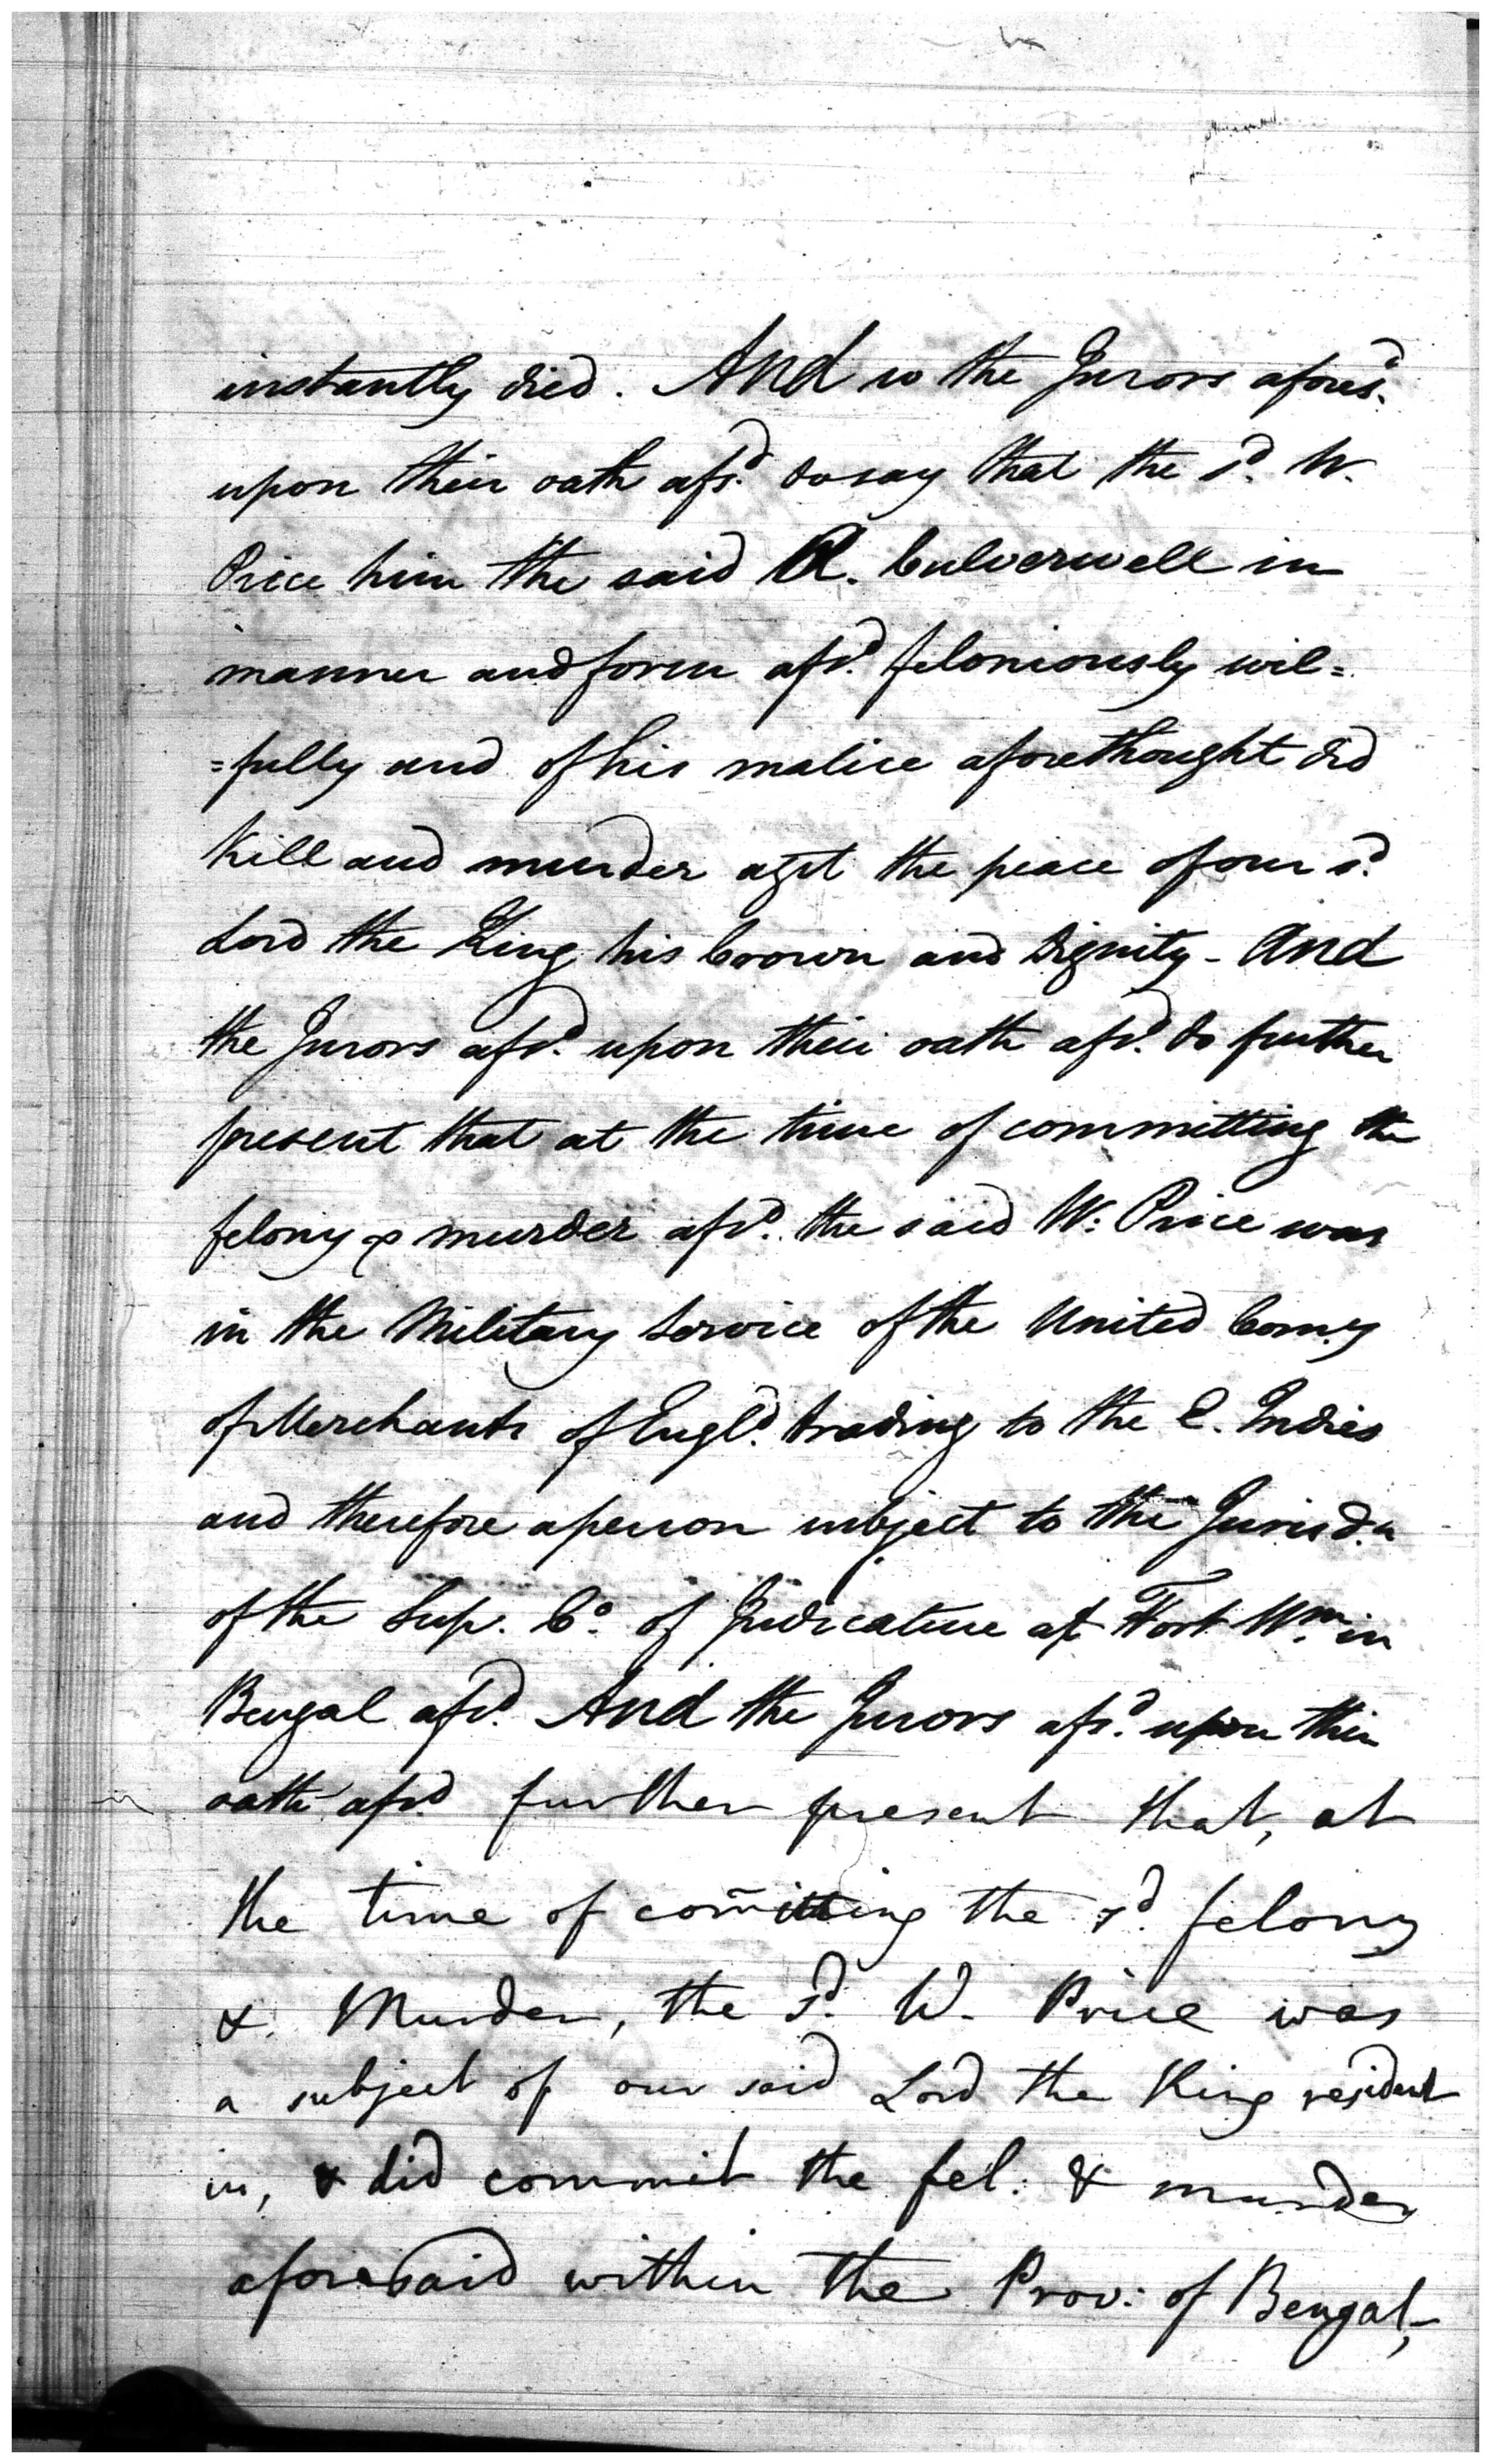 instantly died. And so the Jurors afores.d
upon their oath afs.d do say that the s.d W.
Price him the said R. Culverwell in
manner and form afs.d feloniously wil=
=fully and of his malice aforethought did
kill and murder agst the peace of our s.d
Lord the King, his Crown and Dignity - And
the Jurors afs.d upon their oath afs.d do further
present that at the time of committing the
felony & murder afs.d the said W: Price was
in the Military Service of the United Comy
of Merchants of Engl.d trading to the E. Indies
and therefore a person subject to the Jurisd.n
of the Sup. Co. of Judicature at Fort Wm. in
Bengal afs.d And the Jurors afs.d upon their
oath afs.d further present that, at
the time of com̃itting the s.d felony
&. Murder, the s.d W. Price was
a subject of our said Lord the King resident
in, & did commit the fel: & murder
aforesaid within the Prov: of Bengal,